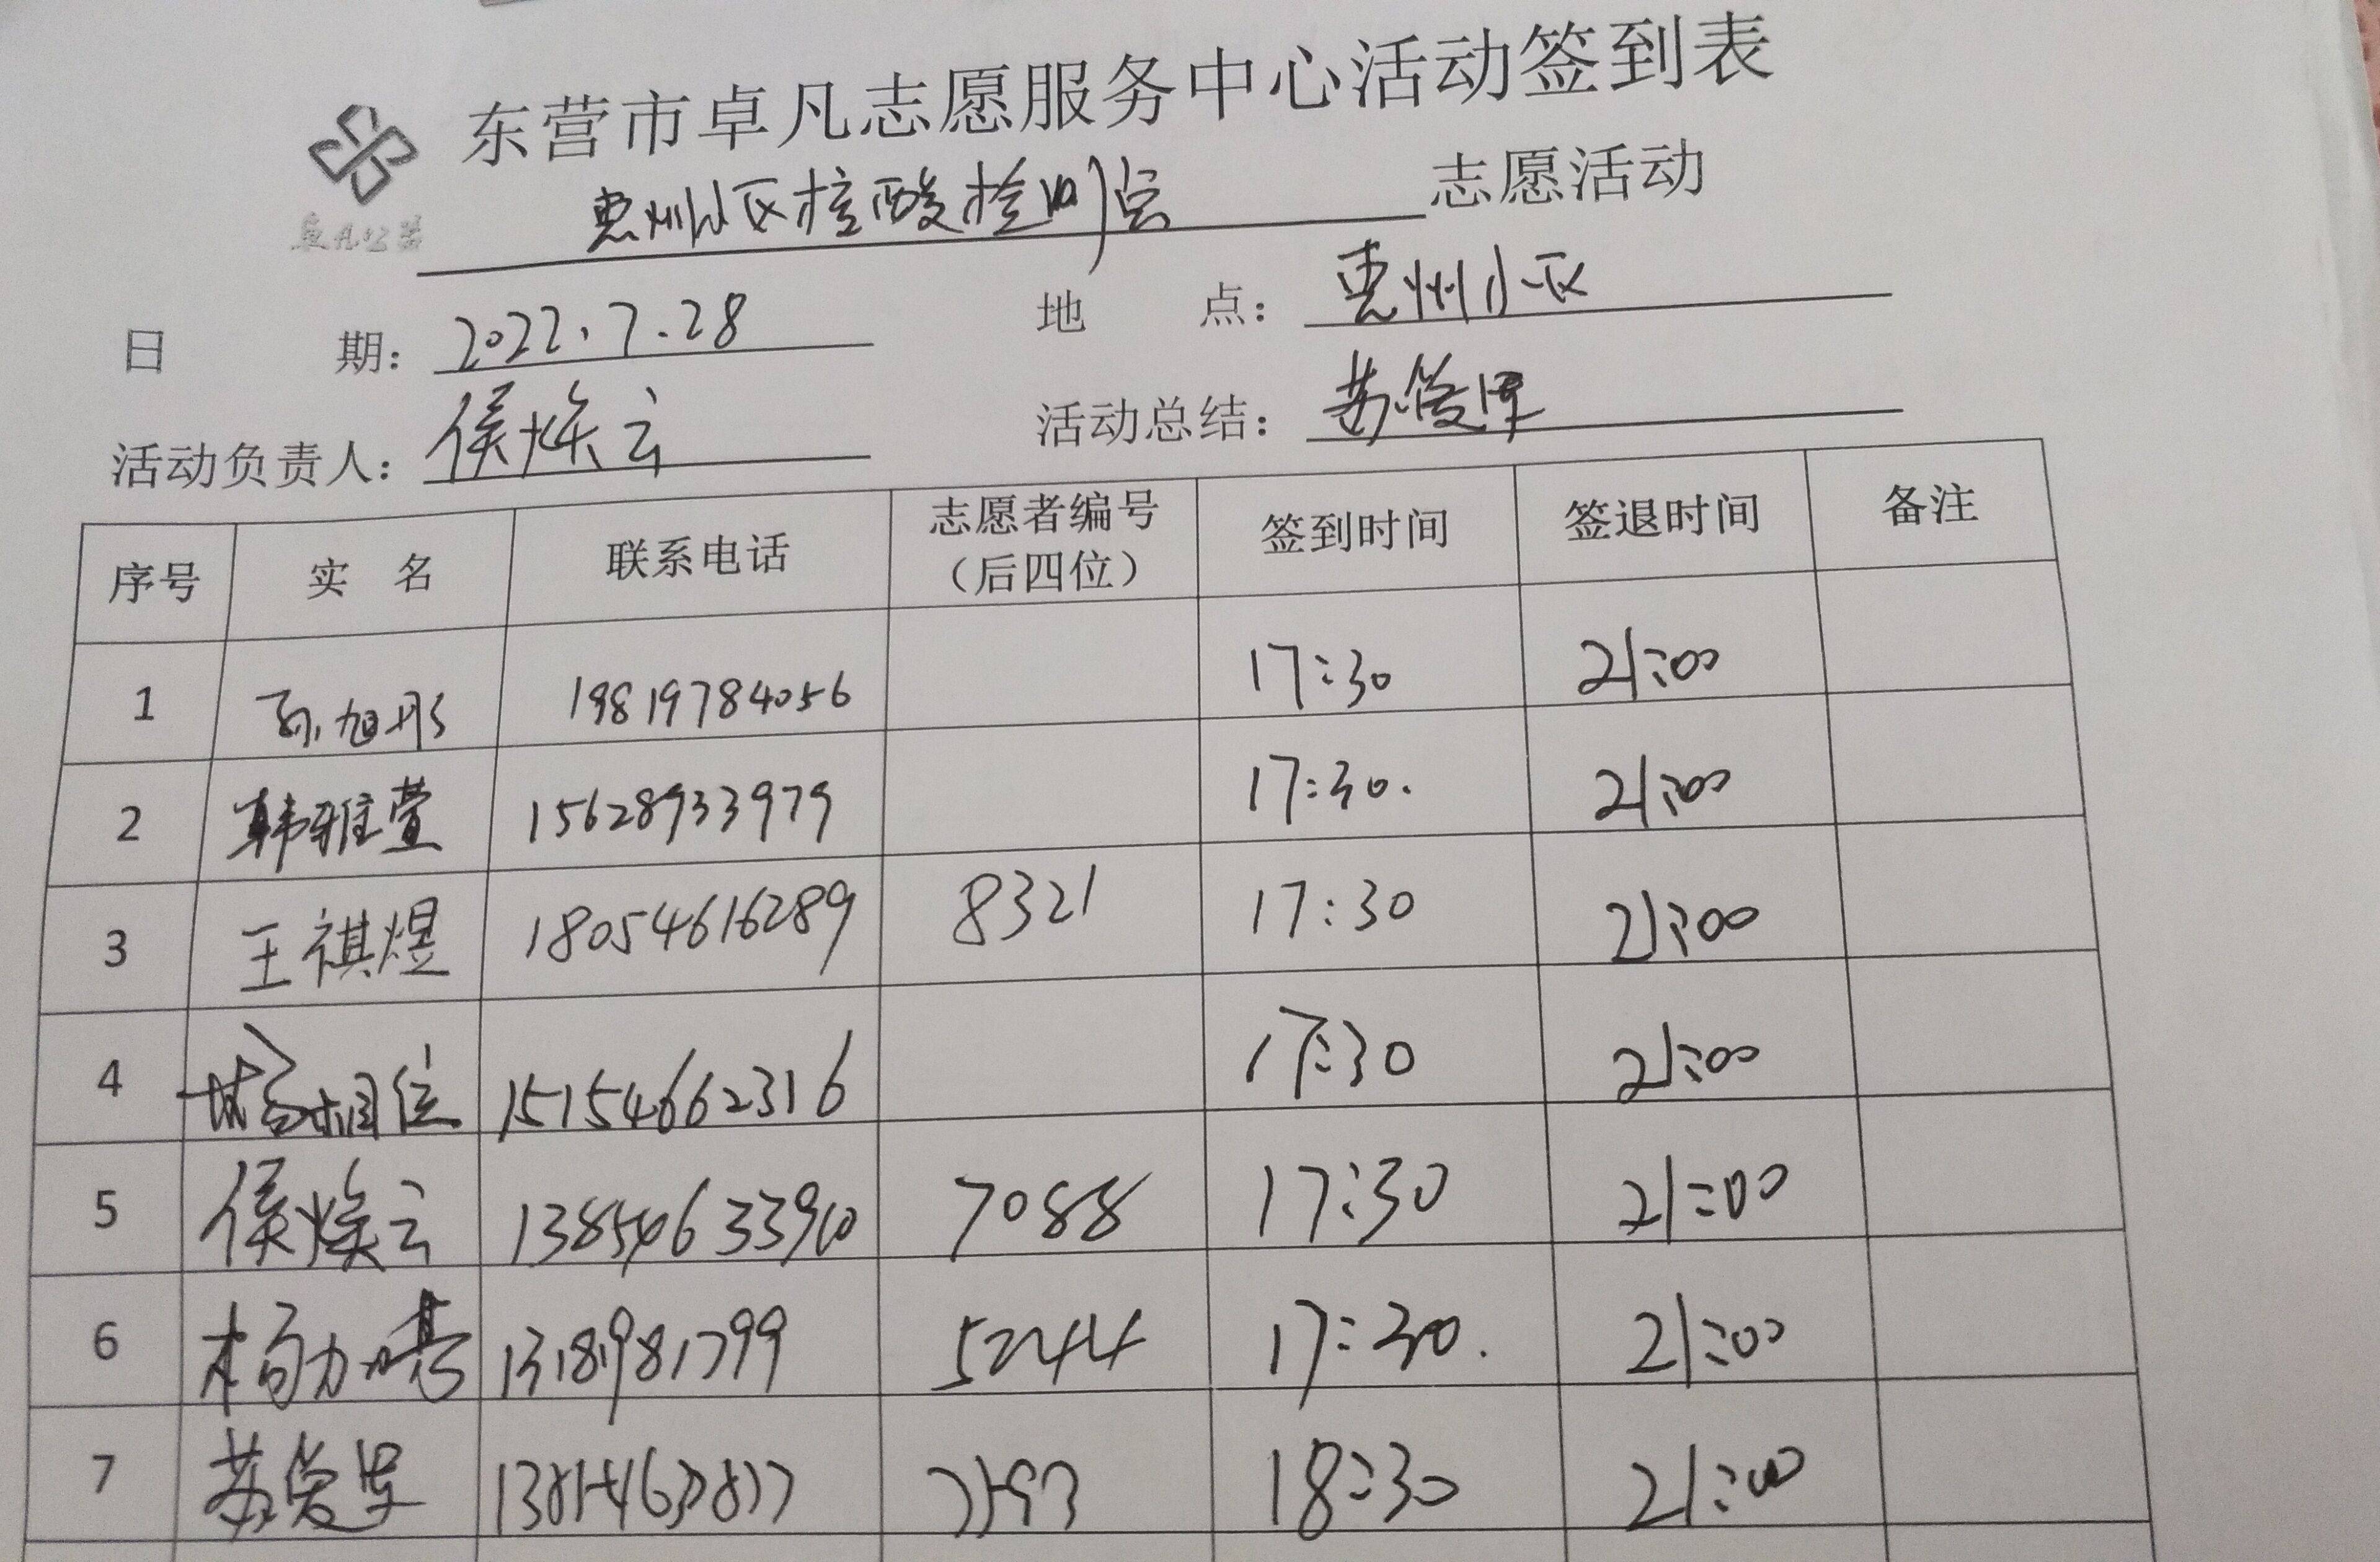 东营市卓凡志愿服务中心活动签到表
卓凡公益
惠州小区核酸检测点 志愿活动
日 期： 2022.7.28 地 点： 惠州小区
活动负责人： 侯焕云 活动总结： 苏
序号 实 名 联系电话 志愿者编号（后四位） 签到时间 签退时间 备注
1 孙旭彤 19819784056 17:30 21:00
2 韩雅萱 15628933979 17:30. 21:00
3 王祺煜 18054616289 8321 17:30 21:00
4 15154662316 17:30 21:00
5 侯焕云 7088 17:30 21:00
6 杨加 13181981799 5244 17:30. 21:00
7 苏 18:30 21:00